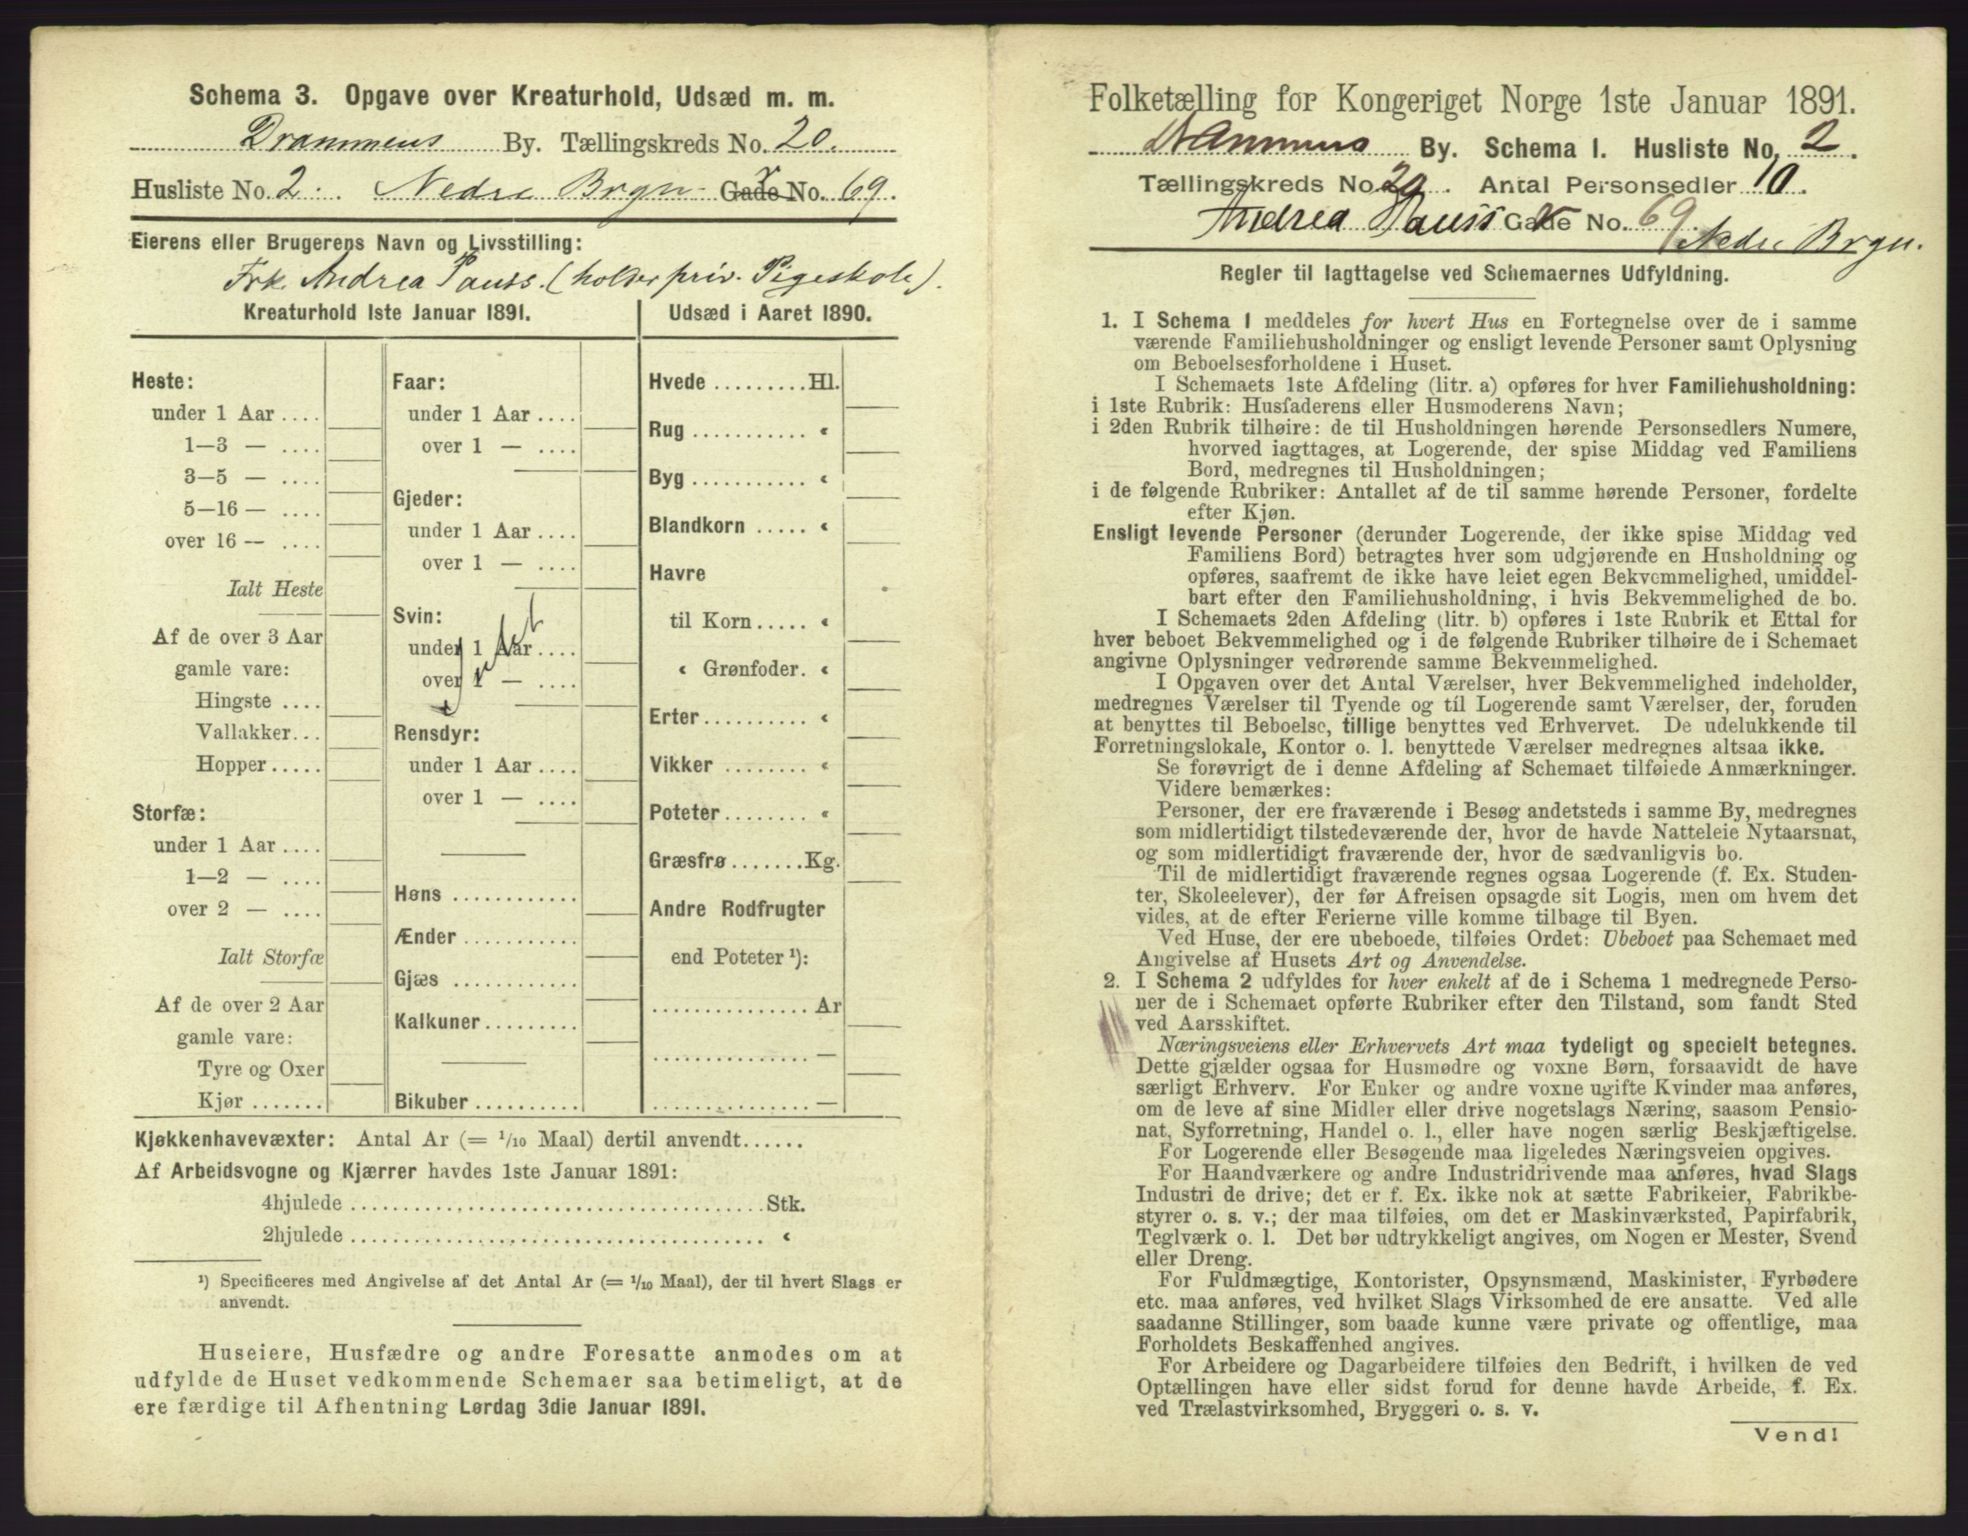 Schema 3. Opgave over Kreaturhold, Udsæd m. m.
Drammens By. Tællingskreds No. 20.
Husliste No. 2. Nedre Brgn. Gade No. 69.
Eierens eller Brugerens Navn og Livsstilling:
Frk. Andrea Pauss. (holder priv. Pigeskole).
Kreaturhold 1ste Januar 1891.
Heste:
under 1 Aar ....
1—3 — ....
3—5 — ....
5—16 — ....
over 16 — ....
Ialt Heste
Af de over 3 Aar
gamle vare:
Hingste ....
Vallakker...
Hopper.....
Storfæ:
under 1 Aar ....
1—2 — ....
over 2 — ....
Ialt Storfæ
Af de over 2 Aar
gamle vare:
Tyre og Oxer
Kjør .......
Faar:
under 1 Aar ....
over 1 — ....
Gjeder:
under 1 Aar ....
over 1 — ....
Svin:
under 1 Aar ....
over 1 — ....
Rensdyr:
under 1 Aar ....
over 1 — ....
Høns ............
Ænder ...........
Gjæs ............
Kalkuner.........
Bikuber ..........
Udsæd i Aaret 1890.
Hvede .........Hl.
Rug ........... «
Byg ........... «
Blandkorn ..... «
Havre
til Korn ..... «
« Grønfoder. «
Erter.......... «
Vikker ........ «
Poteter ........ «
Græsfrø.......Kg.
Andre Rodfrugter
end Poteter ¹):
............... Ar
............... —
............... —
Kjøkkenhavevæxter: Antal Ar (= 1/10 Maal) dertil anvendt......
Af Arbeidsvogne og Kjærrer havdes 1ste Januar 1891:
4hjulede ........................................Stk.
2hjulede ........................................ «
¹) Specificeres med Angivelse af det Antal Ar (= 1/10 Maal), der til hvert Slags er
anvendt.
Huseiere, Husfædre og andre Foresatte anmodes om at
udfylde de Huset vedkommende Schemaer saa betimeligt, at de
ere færdige til Afhentning Lørdag 3die Januar 1891.
Folketælling for Kongeriget Norge 1ste Januar 1891.
Drammens By. Schema I. Husliste No. 2.
Tællingskreds No. 20. Antal Personsedler 10.
Andrea Pauss Gade No. 69 Nedre Brgn.
Regler til Iagttagelse ved Schemaernes Udfyldning.
1. I Schema 1 meddeles for hvert Hus en Fortegnelse over de i samme
værende Familiehusholdninger og ensligt levende Personer samt Oplysning
om Beboelsesforholdene i Huset.
I Schemaets 1ste Afdeling (litr. a) opføres for hver Familiehusholdning:
i 1ste Rubrik: Husfaderens eller Husmoderens Navn;
i 2den Rubrik tilhøire: de til Husholdningen hørende Personsedlers Numere,
hvorved iagttages, at Logerende, der spise Middag ved Familiens
Bord, medregnes til Husholdningen;
i de følgende Rubriker: Antallet af de til samme hørende Personer, fordelte
efter Kjøn.
Ensligt levende Personer (derunder Logerende, der ikke spise Middag ved
Familiens Bord) betragtes hver som udgjørende en Husholdning og
opføres, saafremt de ikke have leiet egen Bekvemmelighed, umiddel-
bart efter den Familiehusholdning, i hvis Bekvemmelighed de bo.
I Schemaets 2den Afdeling (litr. b) opføres i 1ste Rubrik et Ettal for
hver beboet Bekvemmelighed og i de følgende Rubriker tilhøire de i Schemaet
angivne Oplysninger vedrørende samme Bekvemmelighed.
I Opgaven over det Antal Værelser, hver Bekvemmelighed indeholder,
medregnes Værelser til Tyende og til Logerende samt Værelser, der, foruden
at benyttes til Beboelse, tillige benyttes ved Erhvervet. De udelukkende til
Forretningslokale, Kontor o. l. benyttede Værelser medregnes altsaa ikke.
Se forøvrigt de i denne Afdeling af Schemaet tilføiede Anmærkninger.
Videre bemærkes:
Personer, der ere fraværende i Besøg andetsteds i samme By, medregnes
som midlertidigt tilstedeværende der, hvor de havde Natteleie Nytaarsnat,
og som midlertidigt fraværende der, hvor de sædvanligvis bo.
Til de midlertidigt fraværende regnes ogsaa Logerende (f. Ex. Studen-
ter, Skoleelever), der før Afreisen opsagde sit Logis, men om hvem det
vides, at de efter Ferierne ville komme tilbage til Byen.
Ved Huse, der ere ubeboede, tilføies Ordet: Ubeboet paa Schemaet med
Angivelse af Husets Art og Anvendelse.
2. I Schema 2 udfyldes for hver enkelt af de i Schema 1 medregnede Perso-
ner de i Schemaet opførte Rubriker efter den Tilstand, som fandt Sted
ved Aarsskiftet.
Næringsveiens eller Erhvervets Art maa tydeligt og specielt betegnes.
Dette gjælder ogsaa for Husmødre og voxne Børn, forsaavidt de have
særligt Erhverv. For Enker og andre voxne ugifte Kvinder maa anføres,
om de leve af sine Midler eller drive nogetslags Næring, saasom Pensio-
nat, Syforretning, Handel o. l., eller have nogen særlig Beskjæftigelse.
For Logerende eller Besøgende maa ligeledes Næringsveien opgives.
For Haandværkere og andre Industridrivende maa anføres, hvad Slags
Industri de drive; det er f. Ex. ikke nok at sætte Fabrikeier, Fabrikbe-
styrer o. s. v.; der maa tilføies, om det er Maskinværksted, Papirfabrik,
Teglværk o. l. Det bør udtrykkeligt angives, om Nogen er Mester, Svend
eller Dreng.
For Fuldmægtige, Kontorister, Opsynsmænd, Maskinister, Fyrbødere
etc. maa anføres, ved hvilket Slags Virksomhed de ere ansatte. Ved alle
saadanne Stillinger, som baade kunne være private og offentlige, maa
Forholdets Beskaffenhed angives.
For Arbeidere og Dagarbeidere tilføies den Bedrift, i hvilken de ved
Optællingen have eller sidst forud for denne havde Arbeide, f. Ex.
ved Trælastvirksomhed, Bryggeri o. s. v.
Vend!